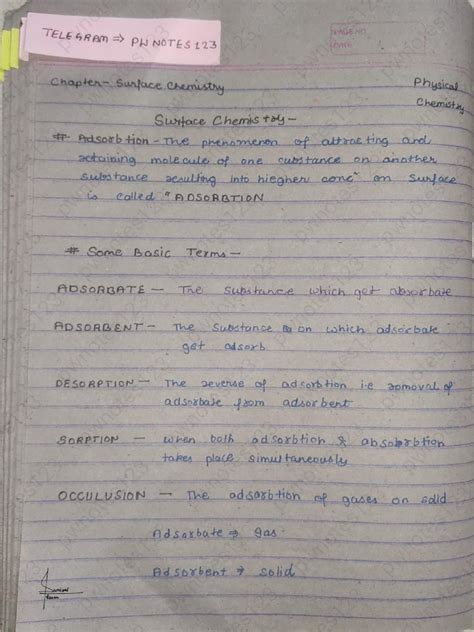 TELEGRAM ⇒ PW NOTES 123
PAGE NO.
DATE
Chapter- Surface Chemistry
Physical
Chemistry
Surface Chemistry-
# Adsorbtion- The phenomenon of attracting and
retaining molecule of one substance on another
substance resulting into hiegher concⁿ on surface
is called "ADSORBTION
# Some Basic Terms-
ADSORBATE- The substance which get absorbate
ADSORBENT- The substance on which adsorbate
get adsorb
DESORPTION- The reverse of adsorbtion i.e removal of
adsorbate from adsorbent
SORPTION- when both adsorbtion & absorbtion
takes place simultaneously
OCCULUSION- The adsorbtion of gases on solid
Adsorbate → gas
Adsorbent → solid
pwnotes123